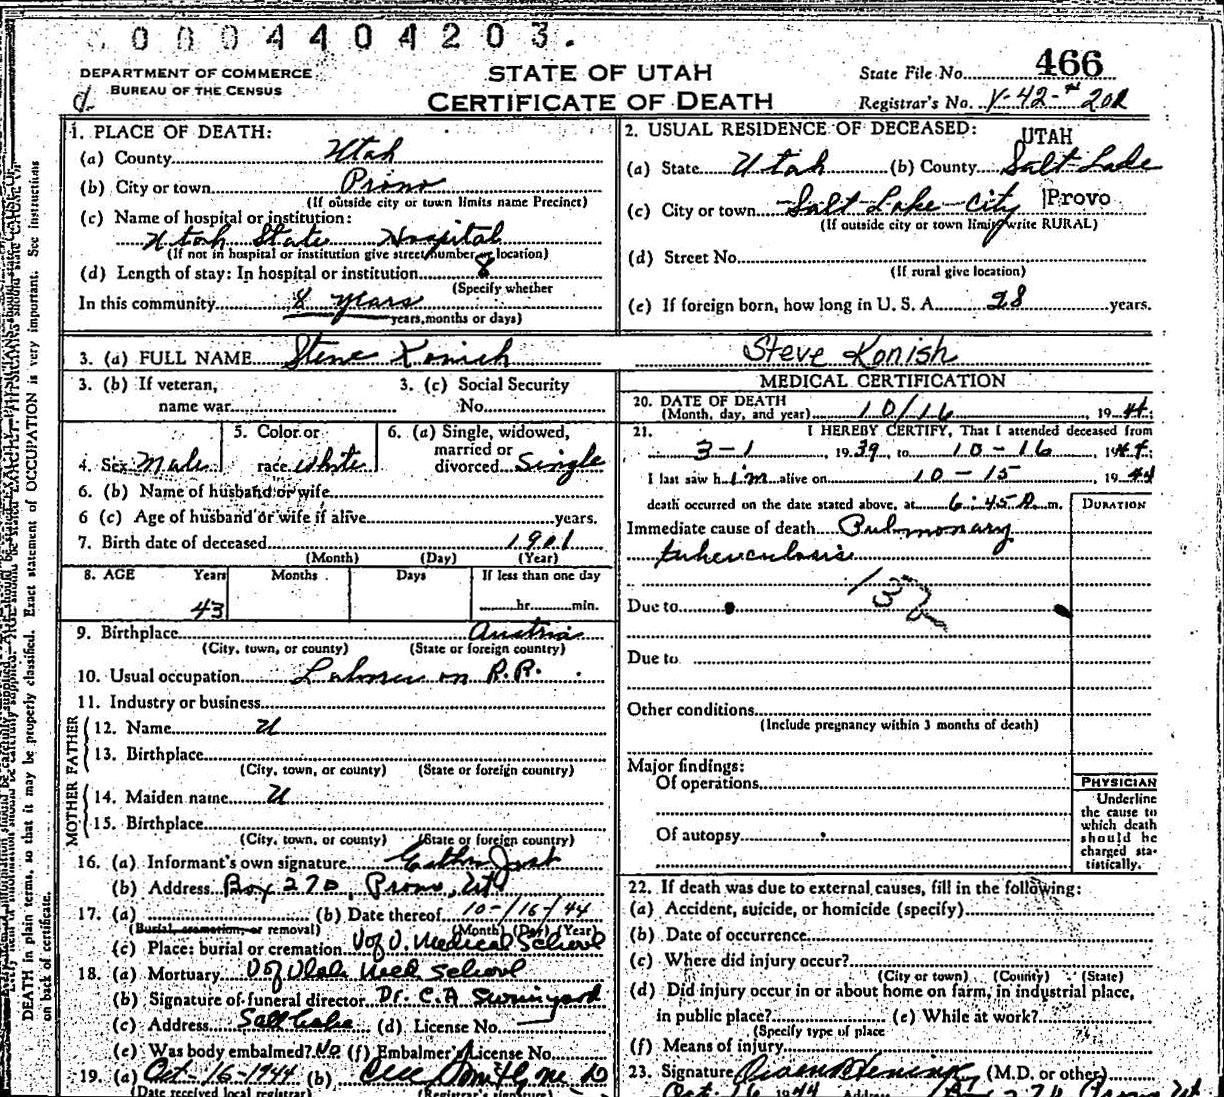 0004404203.
DEPARTMENT OF COMMERCE
BUREAU OF THE CENSUS
d
STATE OF UTAH
CERTIFICATE OF DEATH
State File No. 466
Registrar's No. V-42-#202
1. PLACE OF DEATH:
(a) County Utah
(b) City or town Provo
(If outside city or town limits name Precinct)
(c) Name of hospital or institution:
Utah State Hospital
(If not in hospital or institution give street number or location)
(d) Length of stay: In hospital or institution 8
(Specify whether
In this community 8 years
years, months or days)
2. USUAL RESIDENCE OF DECEASED:
UTAH
(a) State Utah (b) County Salt Lake
(c) City or town Salt Lake City Provo
(If outside city or town limits write RURAL)
(d) Street No.
(If rural give location)
(e) If foreign born, how long in U. S. A. 28 years.
3. (a) FULL NAME Steve Konish Steve Konish
3. (b) If veteran,
name war
3. (c) Social Security
No.
4. Sex Male
5. Color or
race White
6. (a) Single, widowed,
married or
divorced Single
6. (b) Name of husband or wife
6 (c) Age of husband or wife if alive years.
7. Birth date of deceased 1901
(Month) (Day) (Year)
8. AGE Years Months Days If less than one day
43 hr. min.
9. Birthplace Austria
(City, town, or county) (State or foreign country)
10. Usual occupation Laborer on R.R.
11. Industry or business
FATHER
12. Name U
13. Birthplace
(City, town, or county) (State or foreign country)
MOTHER
14. Maiden name U
15. Birthplace
(City, town, or county) (State or foreign country)
16. (a) Informant's own signature
(b) Address Box 270, Provo, Ut
17. (a) (b) Date thereof 10-16-44
(Burial, cremation, or removal) (Month) (Day) (Year)
(c) Place: burial or cremation U of U. Medical School
18. (a) Mortuary U of Utah Med School
(b) Signature of funeral director Dr. C. A Swinyard
(c) Address Salt Lake (d) License No.
(e) Was body embalmed? No (f) Embalmer's License No.
19. (a) Oct-16-1944 (b)
(Date received local registrar) (Registrar's signature)
MEDICAL CERTIFICATION
20. DATE OF DEATH
(Month, day, and year) 10/16, 1944.
21. I HEREBY CERTIFY, That I attended deceased from
3-1, 1939, to 10-16, 1944.
I last saw him alive on 10-15, 1944
death occurred on the date stated above, at 6:45 m. DURATION
Immediate cause of death Pulmonary
tuberculosis
Due to
Due to
Other conditions
(Include pregnancy within 3 months of death)
Major findings:
Of operations
Of autopsy
PHYSICIAN
Underline
the cause to
which death
should be
charged sta-
tistically.
22. If death was due to external causes, fill in the following:
(a) Accident, suicide, or homicide (specify)
(b) Date of occurrence
(c) Where did injury occur?
(City or town) (County) (State)
(d) Did injury occur in or about home on farm, in industrial place,
in public place? (e) While at work?
(Specify type of place
(f) Means of injury
23. Signature (M.D. or other)
Oct. 16 1944 Address Box 270 Provo Ut
DEATH in plain terms, so that it may be properly classified. Exact statement of OCCUPATION is very important. See instructions
on back of certificate.